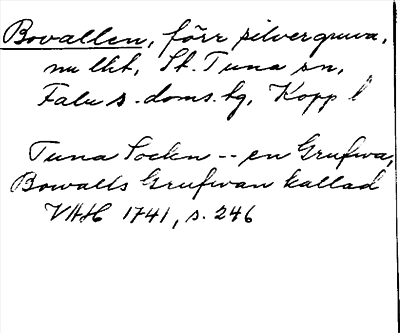 Bovallen, förr silvergruva,
nu lht, St. Tuna sn,
Falu s. doms.hg, Kopp l
Tuna Sockn -- en Grufwa,
Bowalls Grufwan kallad
VAH 1741, s. 246